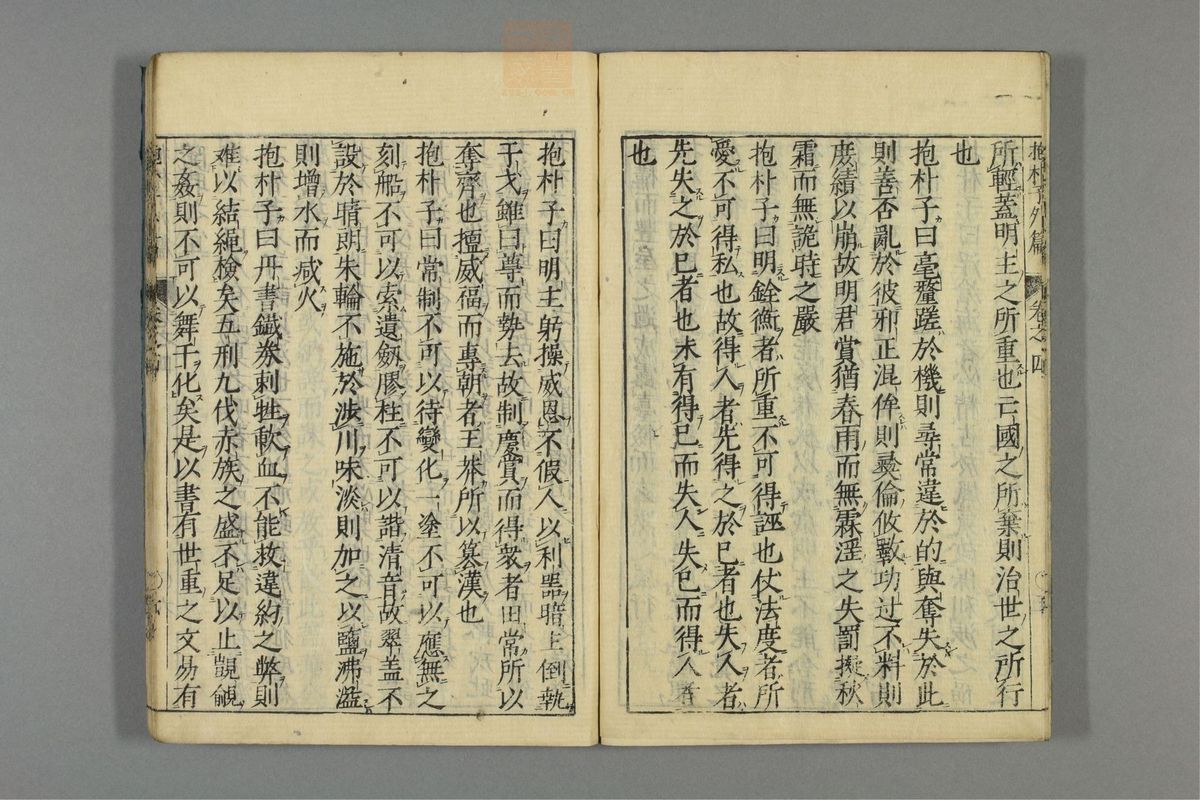 抱朴子外篇 卷之四
所輕蓋明主之所重也亡國之所棄則治世之所行
也
抱朴子曰毫釐蹉於機則尋常違於的與奪失於此
則善否亂於彼邪正混侔則彛倫攸斁功过不料則
庻績以崩故明君賞猶春雨而無霖淫之失罰擬秋
霜而無詭時之嚴
抱朴子曰明銓衡者所重不可得誣也仗法度者所
愛不可得私也故得人者先得之於巳者也失人者
先失之於巳者也未有得巳而失人失巳而得人者
也
抱朴子曰明主躬操威恩不假人以利器暗主倒執
干戈雖曰尊而勢去故制慶賞而得衆者田常所以
奪齊也擅威福而專朝者王莽所以篡漢也
抱朴子曰常制不可以待變化一塗不可以應無之
刻船不可以索遺劔膠柱不可以諧清音故翠盖不
設於晴朗朱輪不施於涉川味淡則加之以鹽沸溢
則增水而减火
抱朴子曰丹書鐵券刺牲歃血不能救違約之弊則
难以結繩檢矣五刑九伐赤族之盛不足以止覬覦
之姦則不可以舞干化矣是以書有世重之文易有